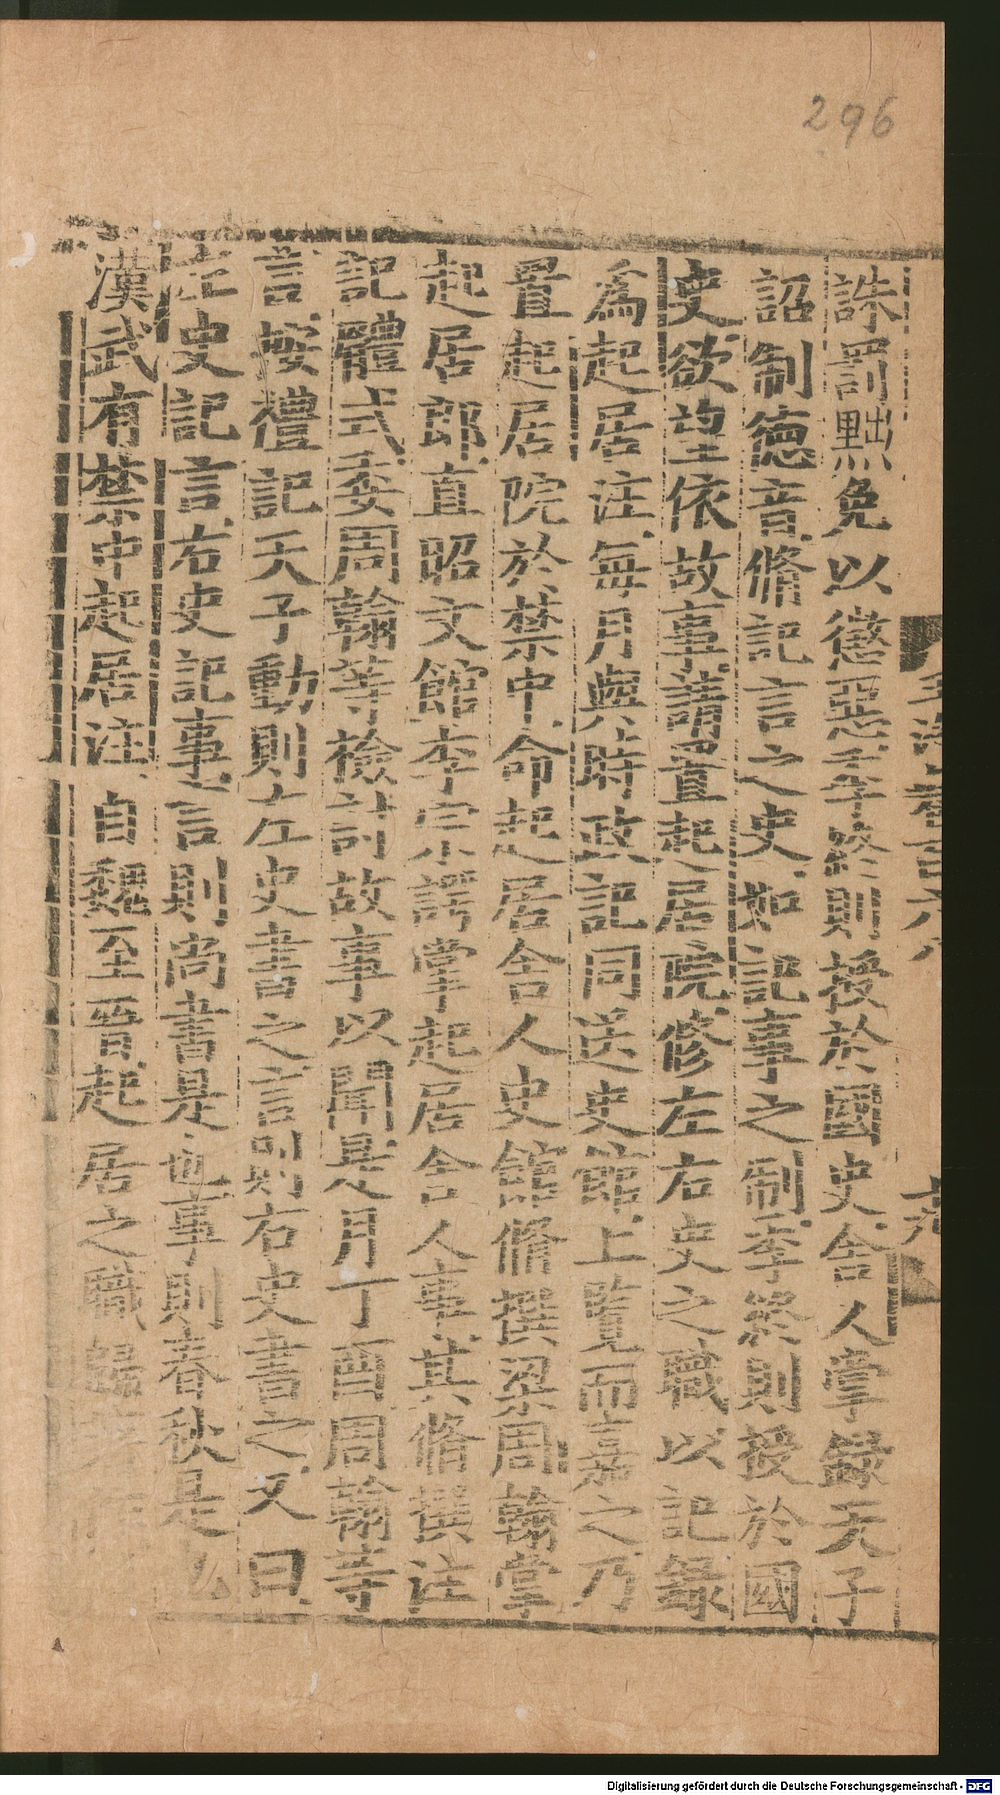 296
誅罰黜免以懲惡季終則授於國史舍人掌錄天子
詔制德音脩記言之史如記事之制季終則授於國
史欲望依故事請置起居院修左右史之職以記錄
為起居注每月與時政記同送史館上覽而嘉之乃
置起居院於禁中命起居舍人史館脩撰梁周翰掌
起居郎直昭文館李宗諤掌起居舍人事其脩撰注
記體式委周翰等檢討故事以聞是月丁酉周翰等
言按禮記天子動則左史書之言則右史書之又曰
左史記言右史記事言則尚書是也事則春秋是
漢武有禁中起居注自魏至晉起居之職
Digitalisierung gefördert durch die Deutsche Forschungsgemeinschaft - DFG